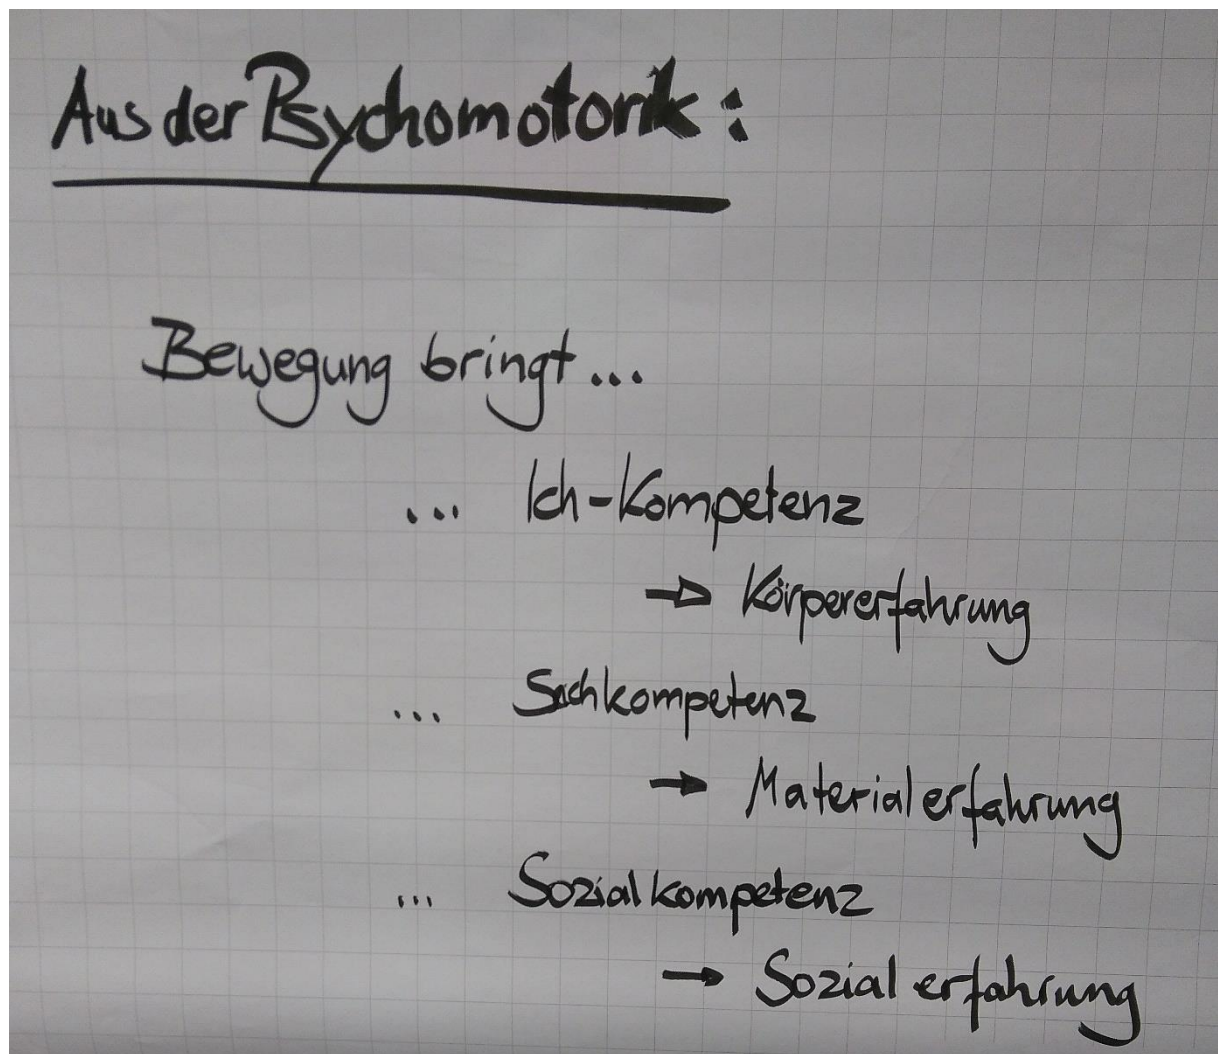 Aus der Psychomotorik:
Bewegung bringt...
... Ich-Kompetenz
→ Körpererfahrung
... Sachkompetenz
→ Materialerfahrung
... Sozialkompetenz
→ Sozialerfahrung